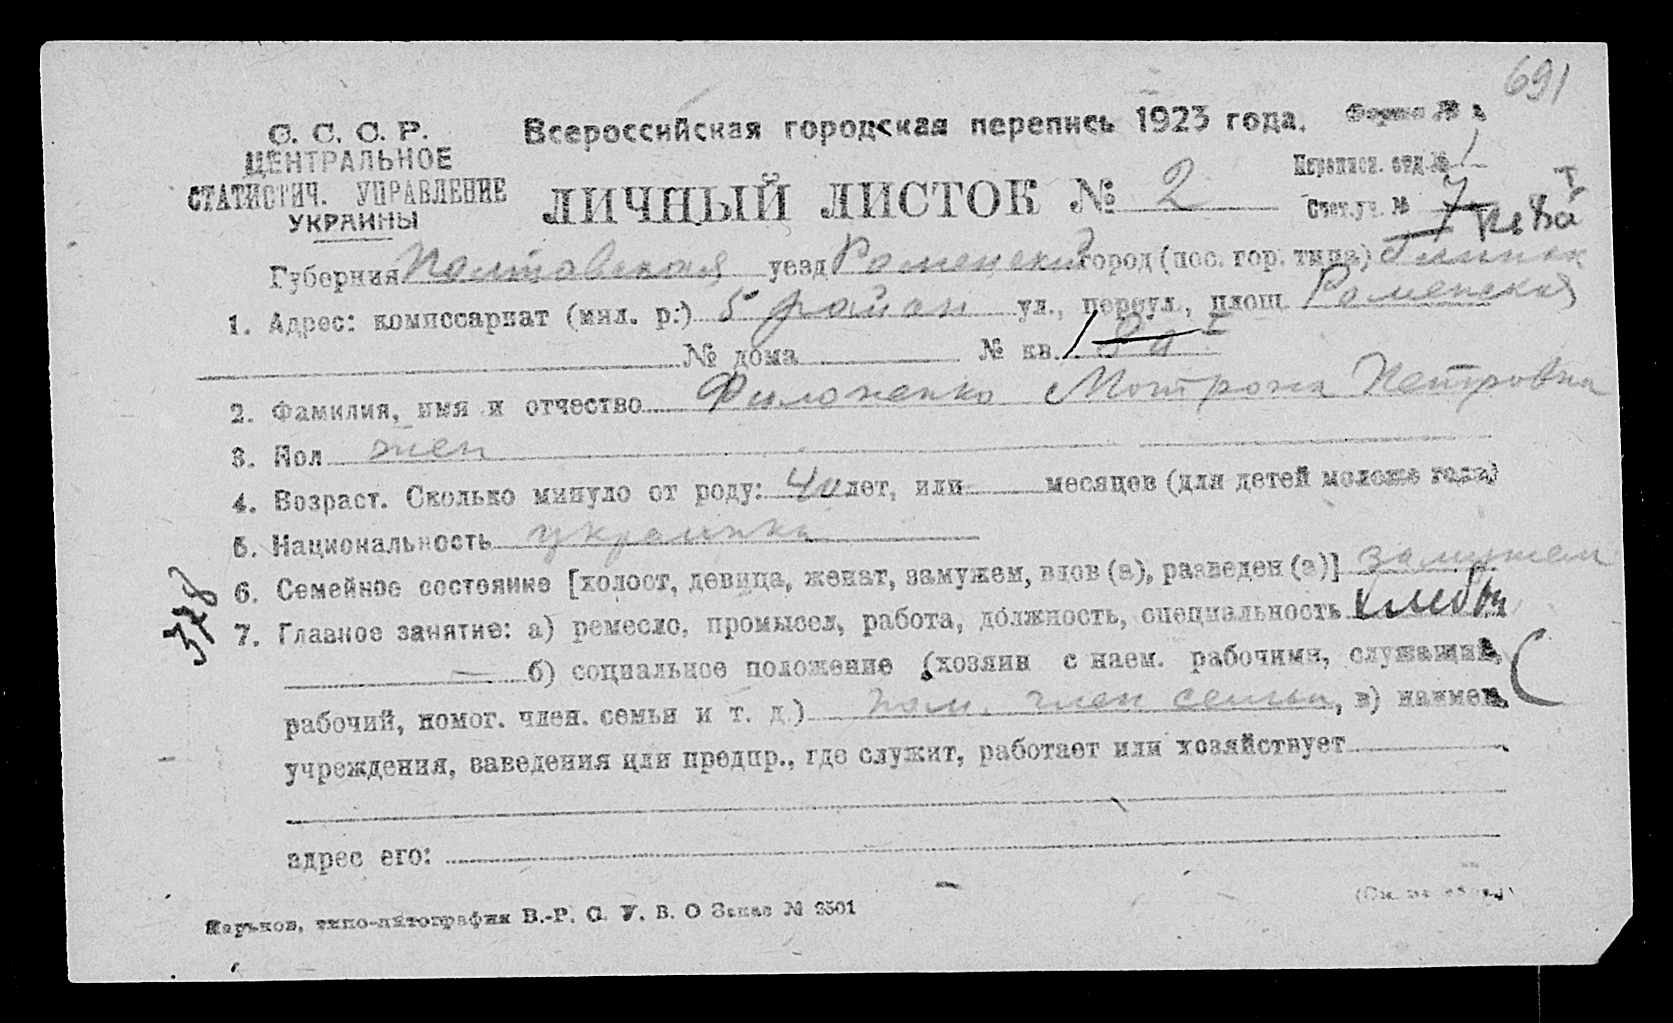 691
С. С. С. Р.
ЦЕНТРАЛЬНОЕ
СТАТИСТИЧ. УПРАВЛЕНИЕ
УКРАИНЫ
Всероссийская городская перепись 1923 года.
Форма №
ЛИЧНЫЙ ЛИСТОК № 2
Переписн. отд. № 1
Счет. уч. № 7
Губерния Полтавская уезд Роменский город (пос. гор. типа) Глинск
1. Адрес: комиссариат (мил. р.) 5 район ул., переул., площ. Роменская
№ дома № кв.
2. Фамилия, имя и отчество Филоненко Мотрона Петровна
3. Пол жен
4. Возраст. Сколько минуло от роду: 40 лет, или месяцев (для детей моложе года)
5. Национальность украинка
6. Семейное состояние [холост, девица, женат, замужем, вдов (а), разведен (а)] замужем
378
7. Главное занятие: а) ремесло, промысел, работа, должность, специальность хлебоп
— б) социальное положение (хозяин с наем. рабочими, служащий,
рабочий, помог. член. семьи и т. д.) пом. член семьи, в) наимен.
учреждения, заведения или предпр., где служит, работает или хозяйствует
адрес его:
(См. на обор.)
Харьков, типо-литография В.-Р. С. У. В. О Заказ № 2501